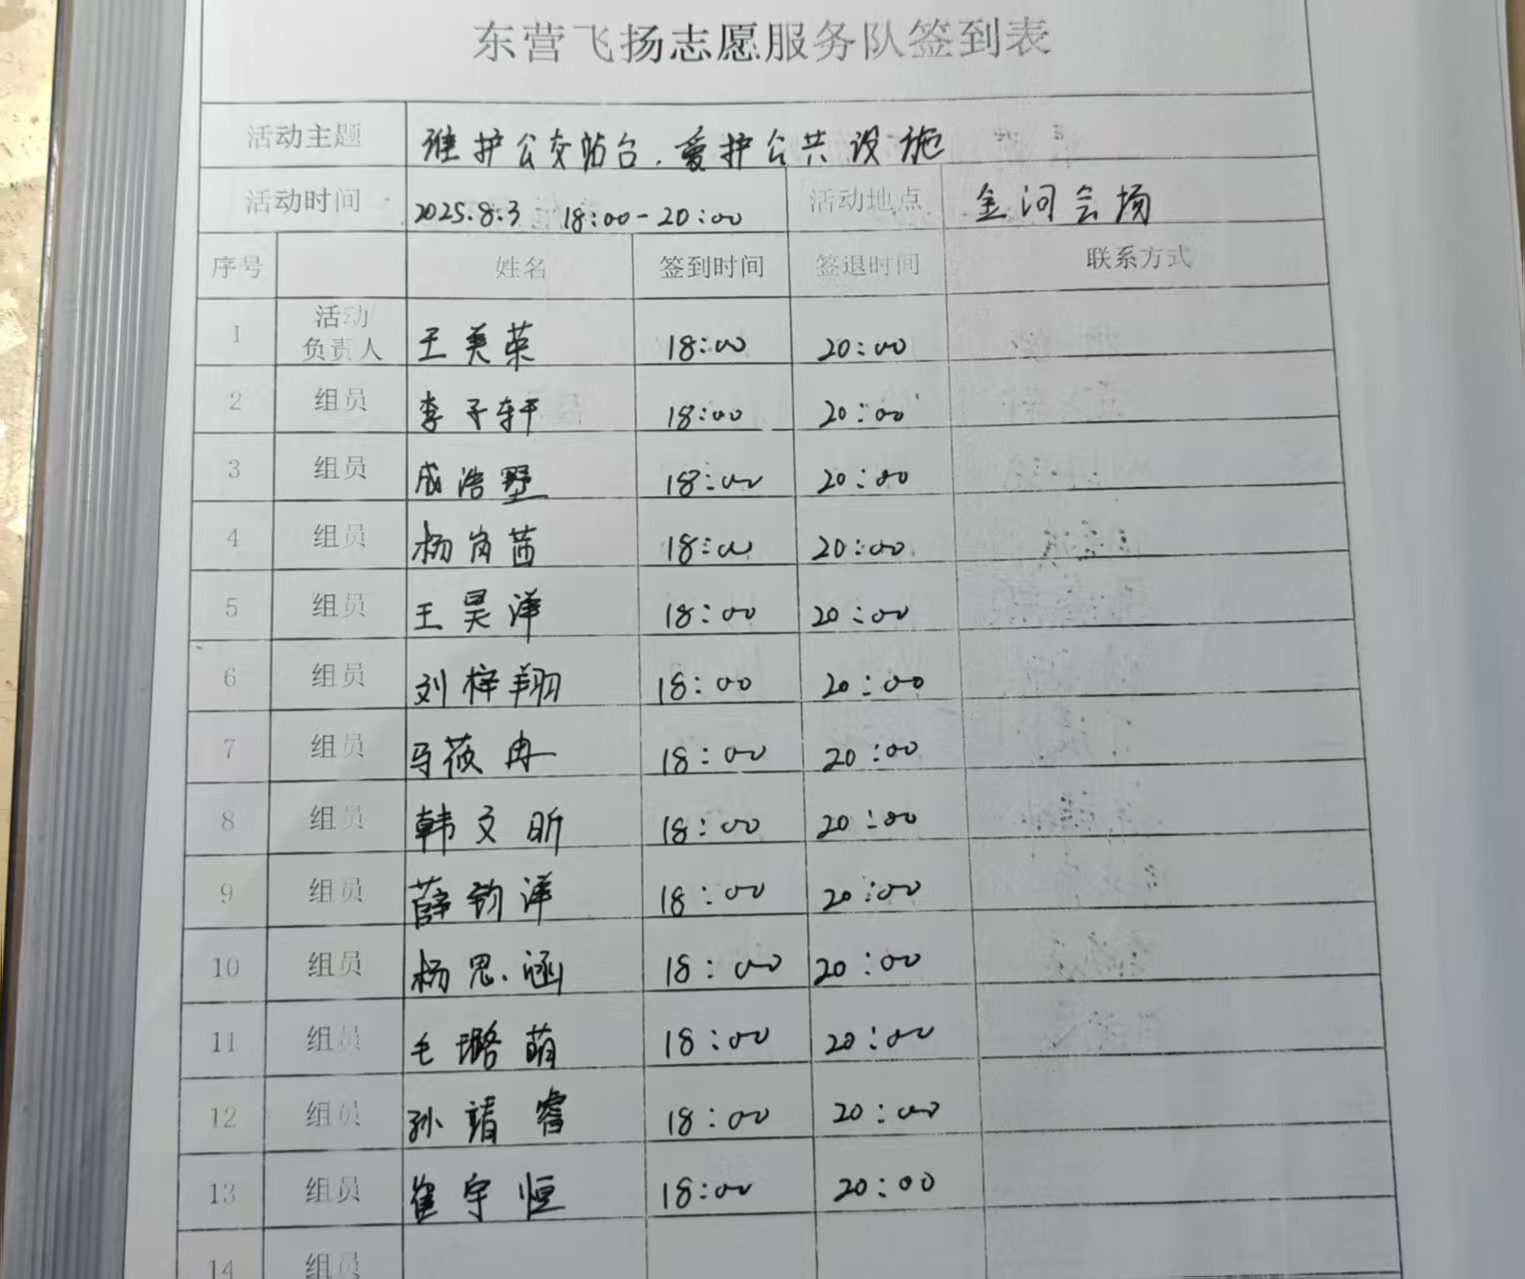 东营飞扬志愿服务队签到表
活动主题 维护公交站台.爱护公共设施
活动时间 2025.8.3 18:00-20:00 活动地点 金河会场
序号 姓名 签到时间 签退时间 联系方式
1 活动负责人 王美荣 18:00 20:00
2 组员 李子轩 18:00 20:00
3 组员 成浩墅 18:00 20:00
4 组员 杨岗茜 18:00 20:00
5 组员 王昊泽 18:00 20:00
6 组员 刘梓翔 18:00 20:00
7 组员 马莜冉 18:00 20:00
8 组员 韩文昕 18:00 20:00
9 组员 薛钧洋 18:00 20:00
10 组员 杨思涵 18:00 20:00
11 组员 毛璐萌 18:00 20:00
12 组员 孙靖睿 18:00 20:00
13 组员 崔宇恒 18:00 20:00
14 组员